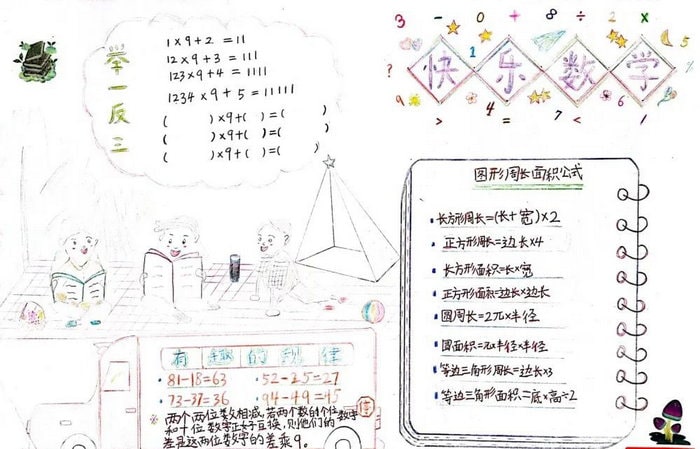 举一反三
1×9+2=11
12×9+3=111
123×9+4=1111
1234×9+5=11111
(    )×9+(  )=(    )
(    )×9+(  )=(    )
(    )×9+(  )=(    )
3 - 0 + 8 ÷ 2 ×
快乐数学
图形周长面积公式
长方形周长=(长+宽)×2
正方形周长=边长×4
长方形面积=长×宽
正方形面积=边长×边长
圆周长=2π×半径
圆面积=π×半径×半径
等边三角形周长=边长×3
等边三角形面积=底×高÷2
有趣的规律
81-18=63 52-25=27
73-37=36 94-49=45
※两个两位数相减,若两个数的个位
和十位数字正好互换,则他们的数字
差是这两位数字的差乘9。